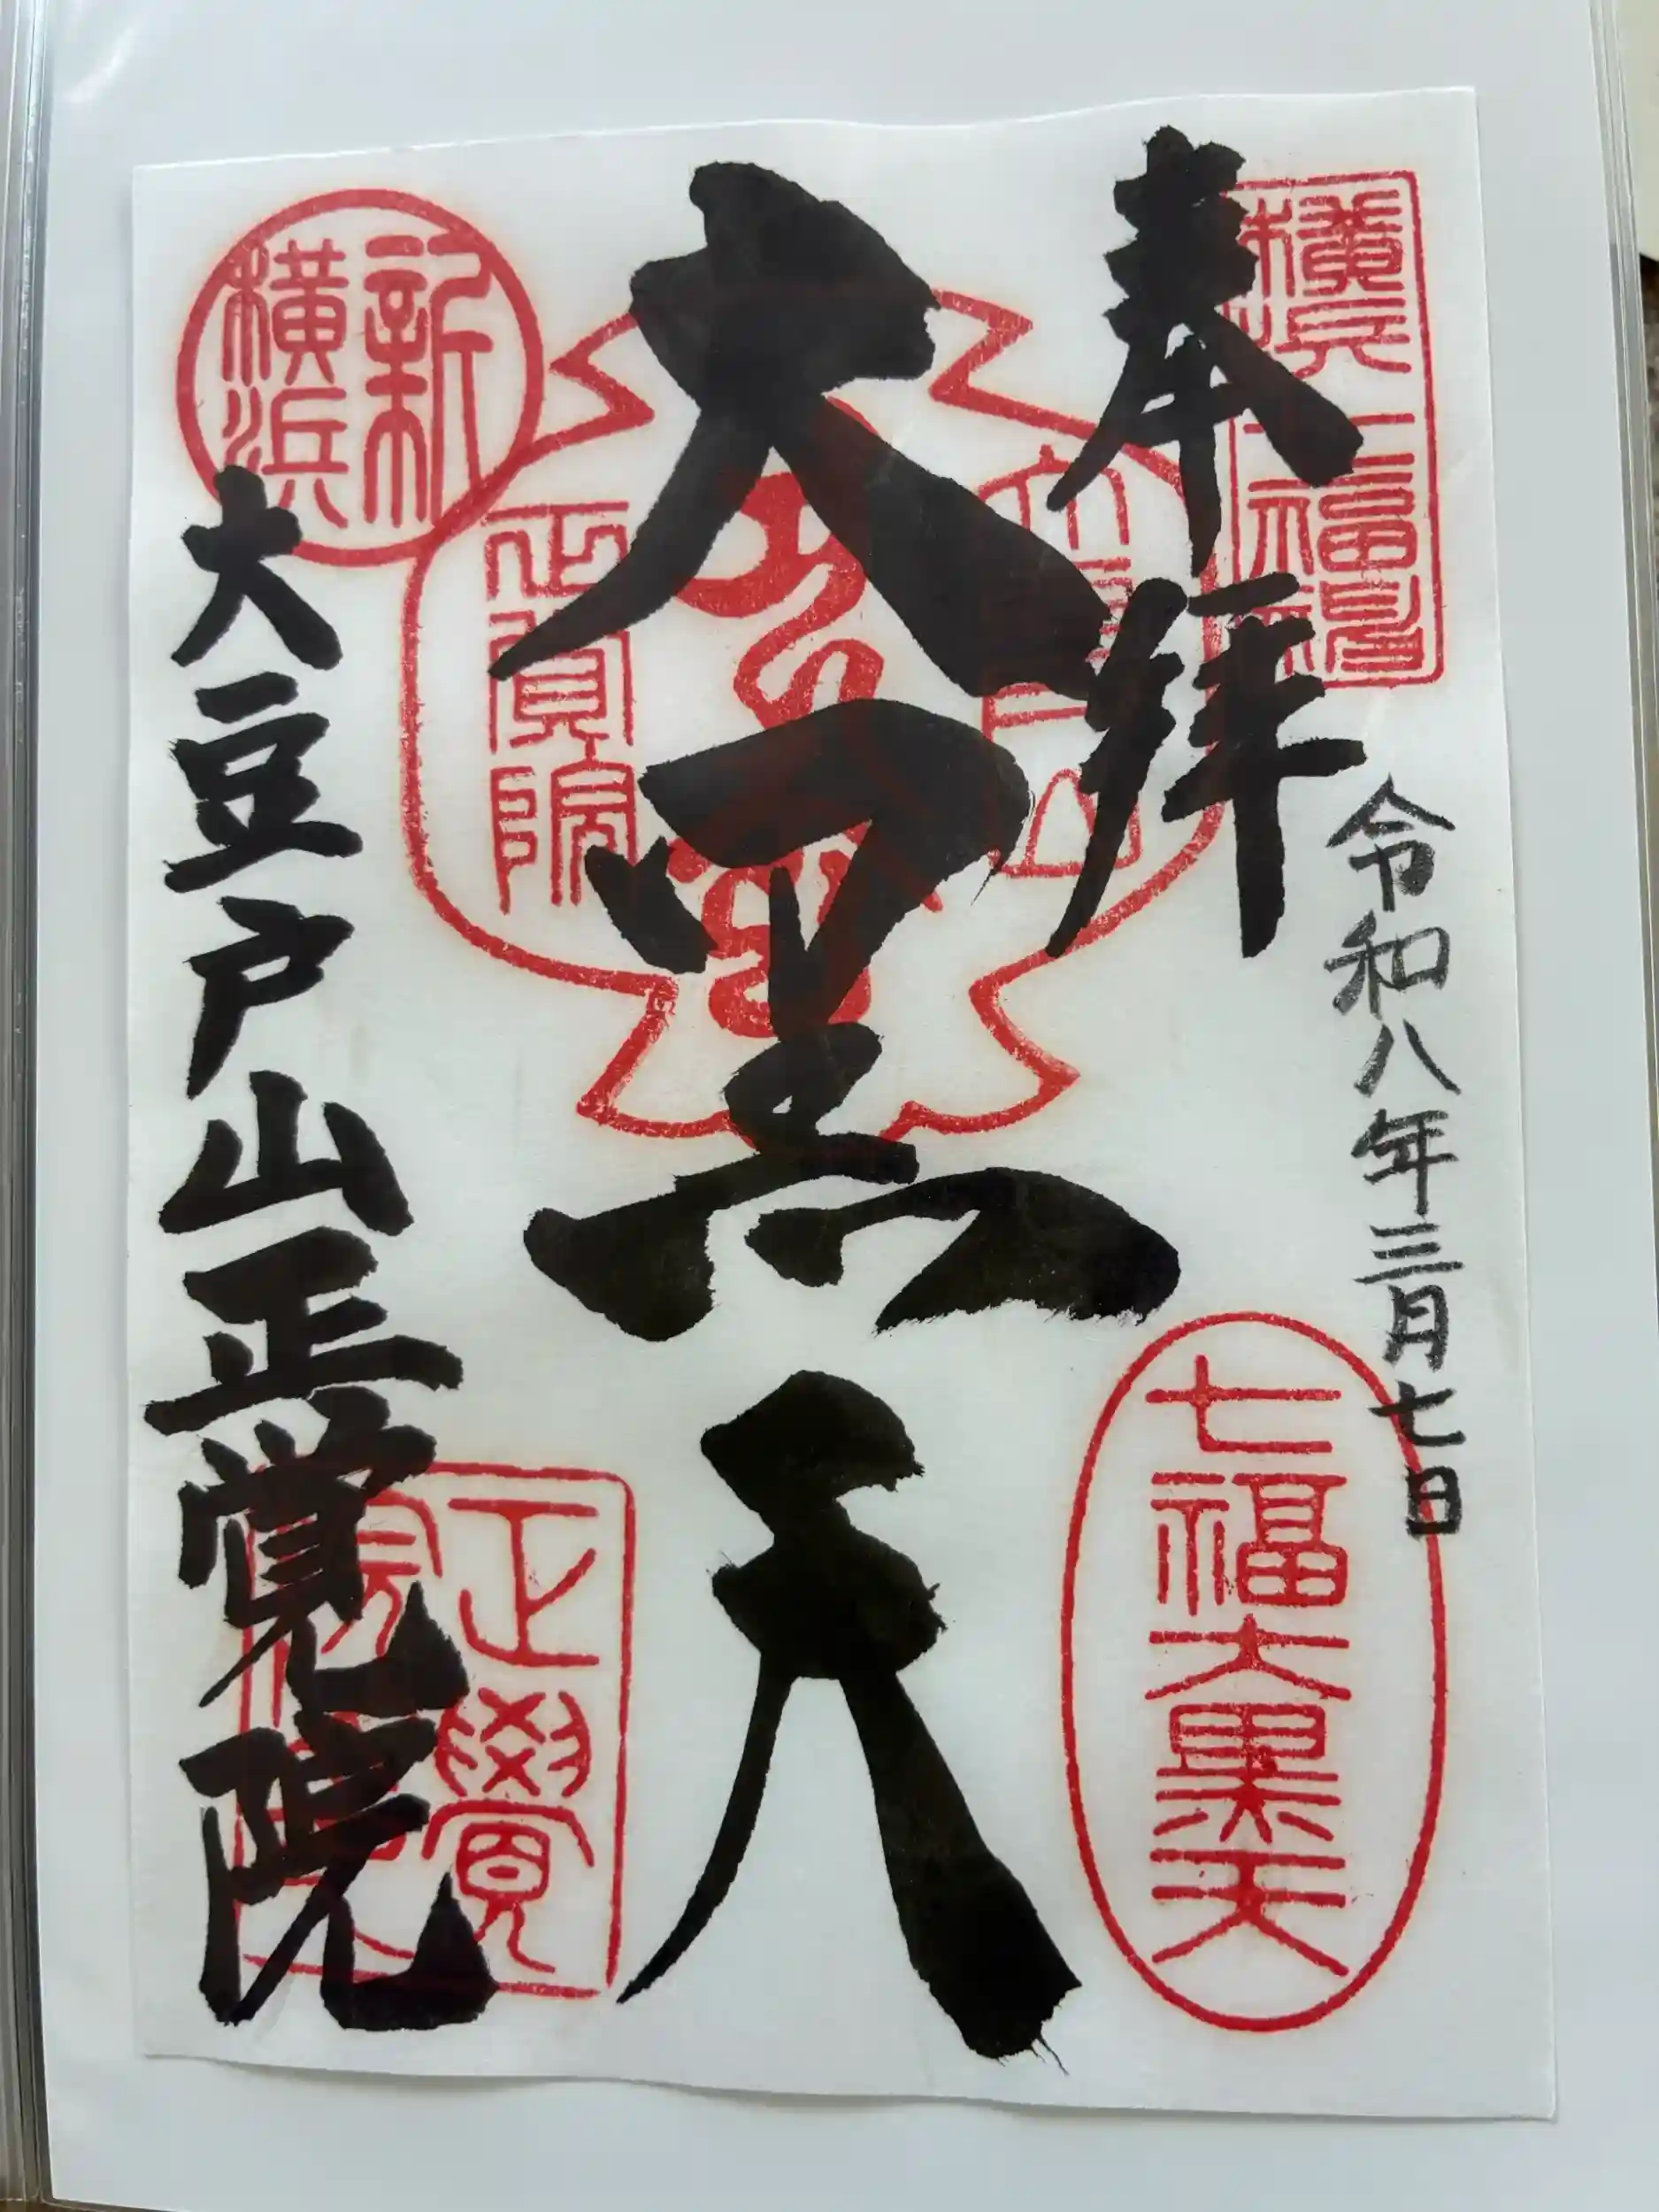 奉拝
令和八年三月七日
七福大黒天
大黒天
正覚院
新横浜
大豆戸山正覚院
正覺